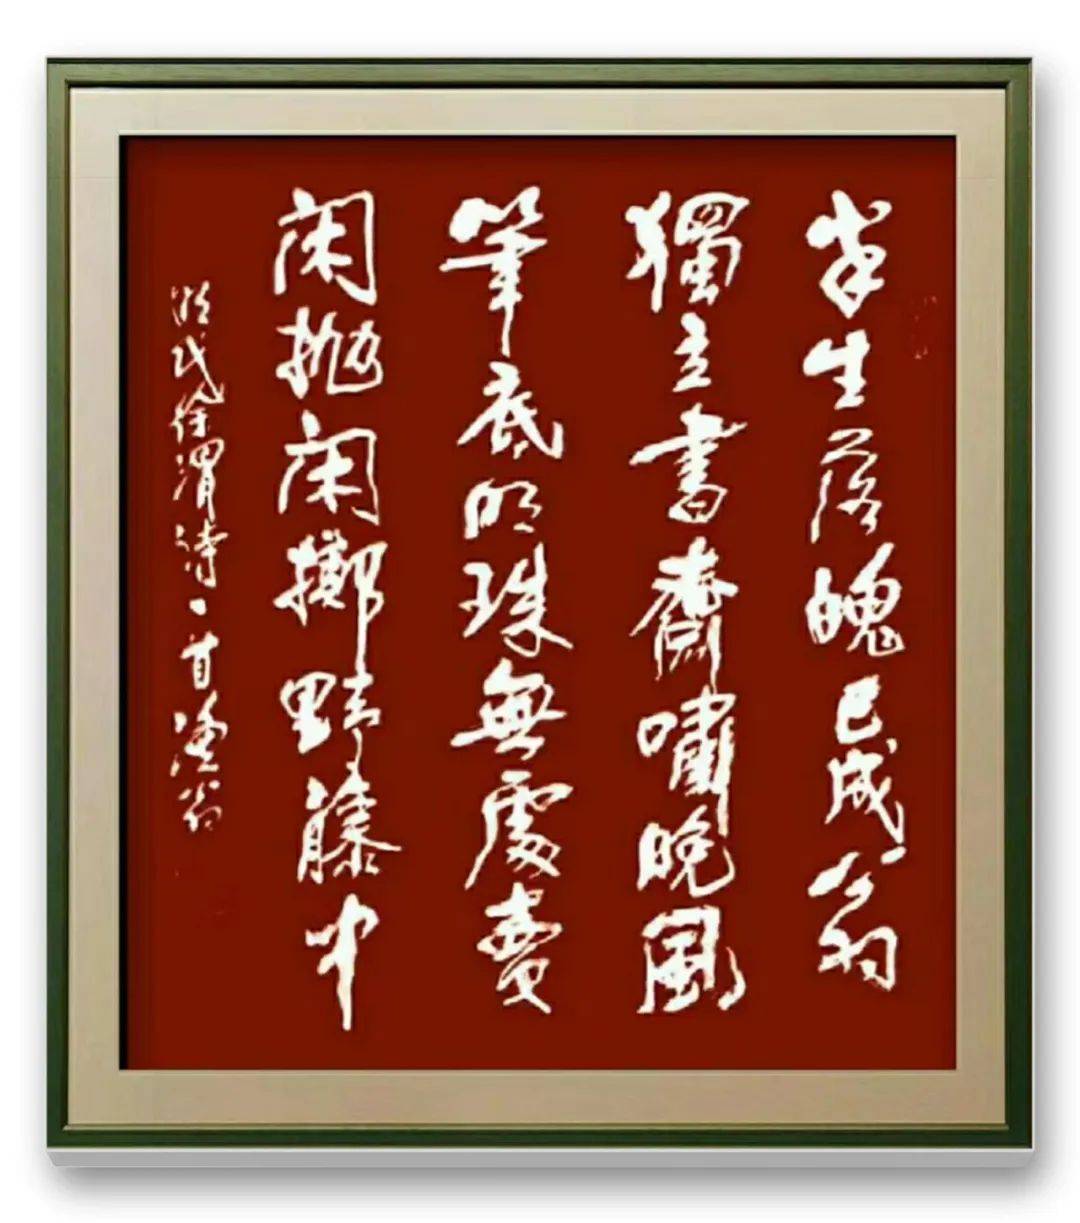 半生落魄已成翁
獨立書齋嘯晚風
筆底明珠無處賣
閑拋閑擲野藤中
明代徐渭詩一首 翁